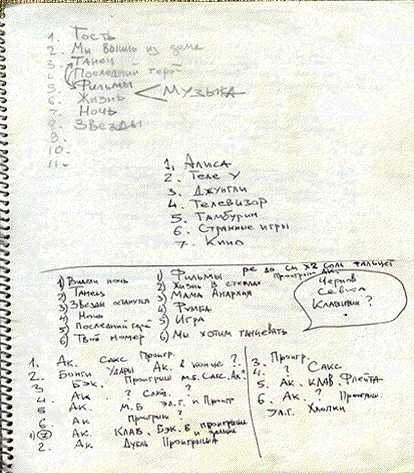 1. Гость
2. Мы вышли из дома
3. Танец
4. Последний герой
5. Фильмы
6. Жизнь
Музыка
7. Ночь
8. Звезды
9.
10.
11.
1. Алиса
2. Теле У
3. Джунгли
4. Телевизор
5. Тамбурин
6. Странные игры
7. Кино
1) Видели ночь
2) Танец
3) Звезды останутся
4) Ночь
5) Последний герой
6) Твой номер
1) Фильмы
2) Жизнь в стеклах
3) Мама Анархия
4) Румба
5) Игра
6) Мы хотим танцевать
ре до си х2 соль фальцет
проигрыш Ак.
Чернов
Севыч
Клавиши ?
1. Ак. Сакс Проигр.
2. Бонги Удары Ак. в конце ?
3. Бэк. Проигрыш м.б. Сакс. Ак.?
4. Ак. ? Сакс. ?
5. Ак. М.Б эл.г. и Проигр
6. Ак проигрыш ?
1) 7 Ак. Клав. Бэк. в проигрыше
2. Ак Дубль Проигрыша
3. Проигр.
4. ? Сакс
5. Ак. Клав. Флейта
6. Ак. ? Проигрыш
Эл.г. Хлопки